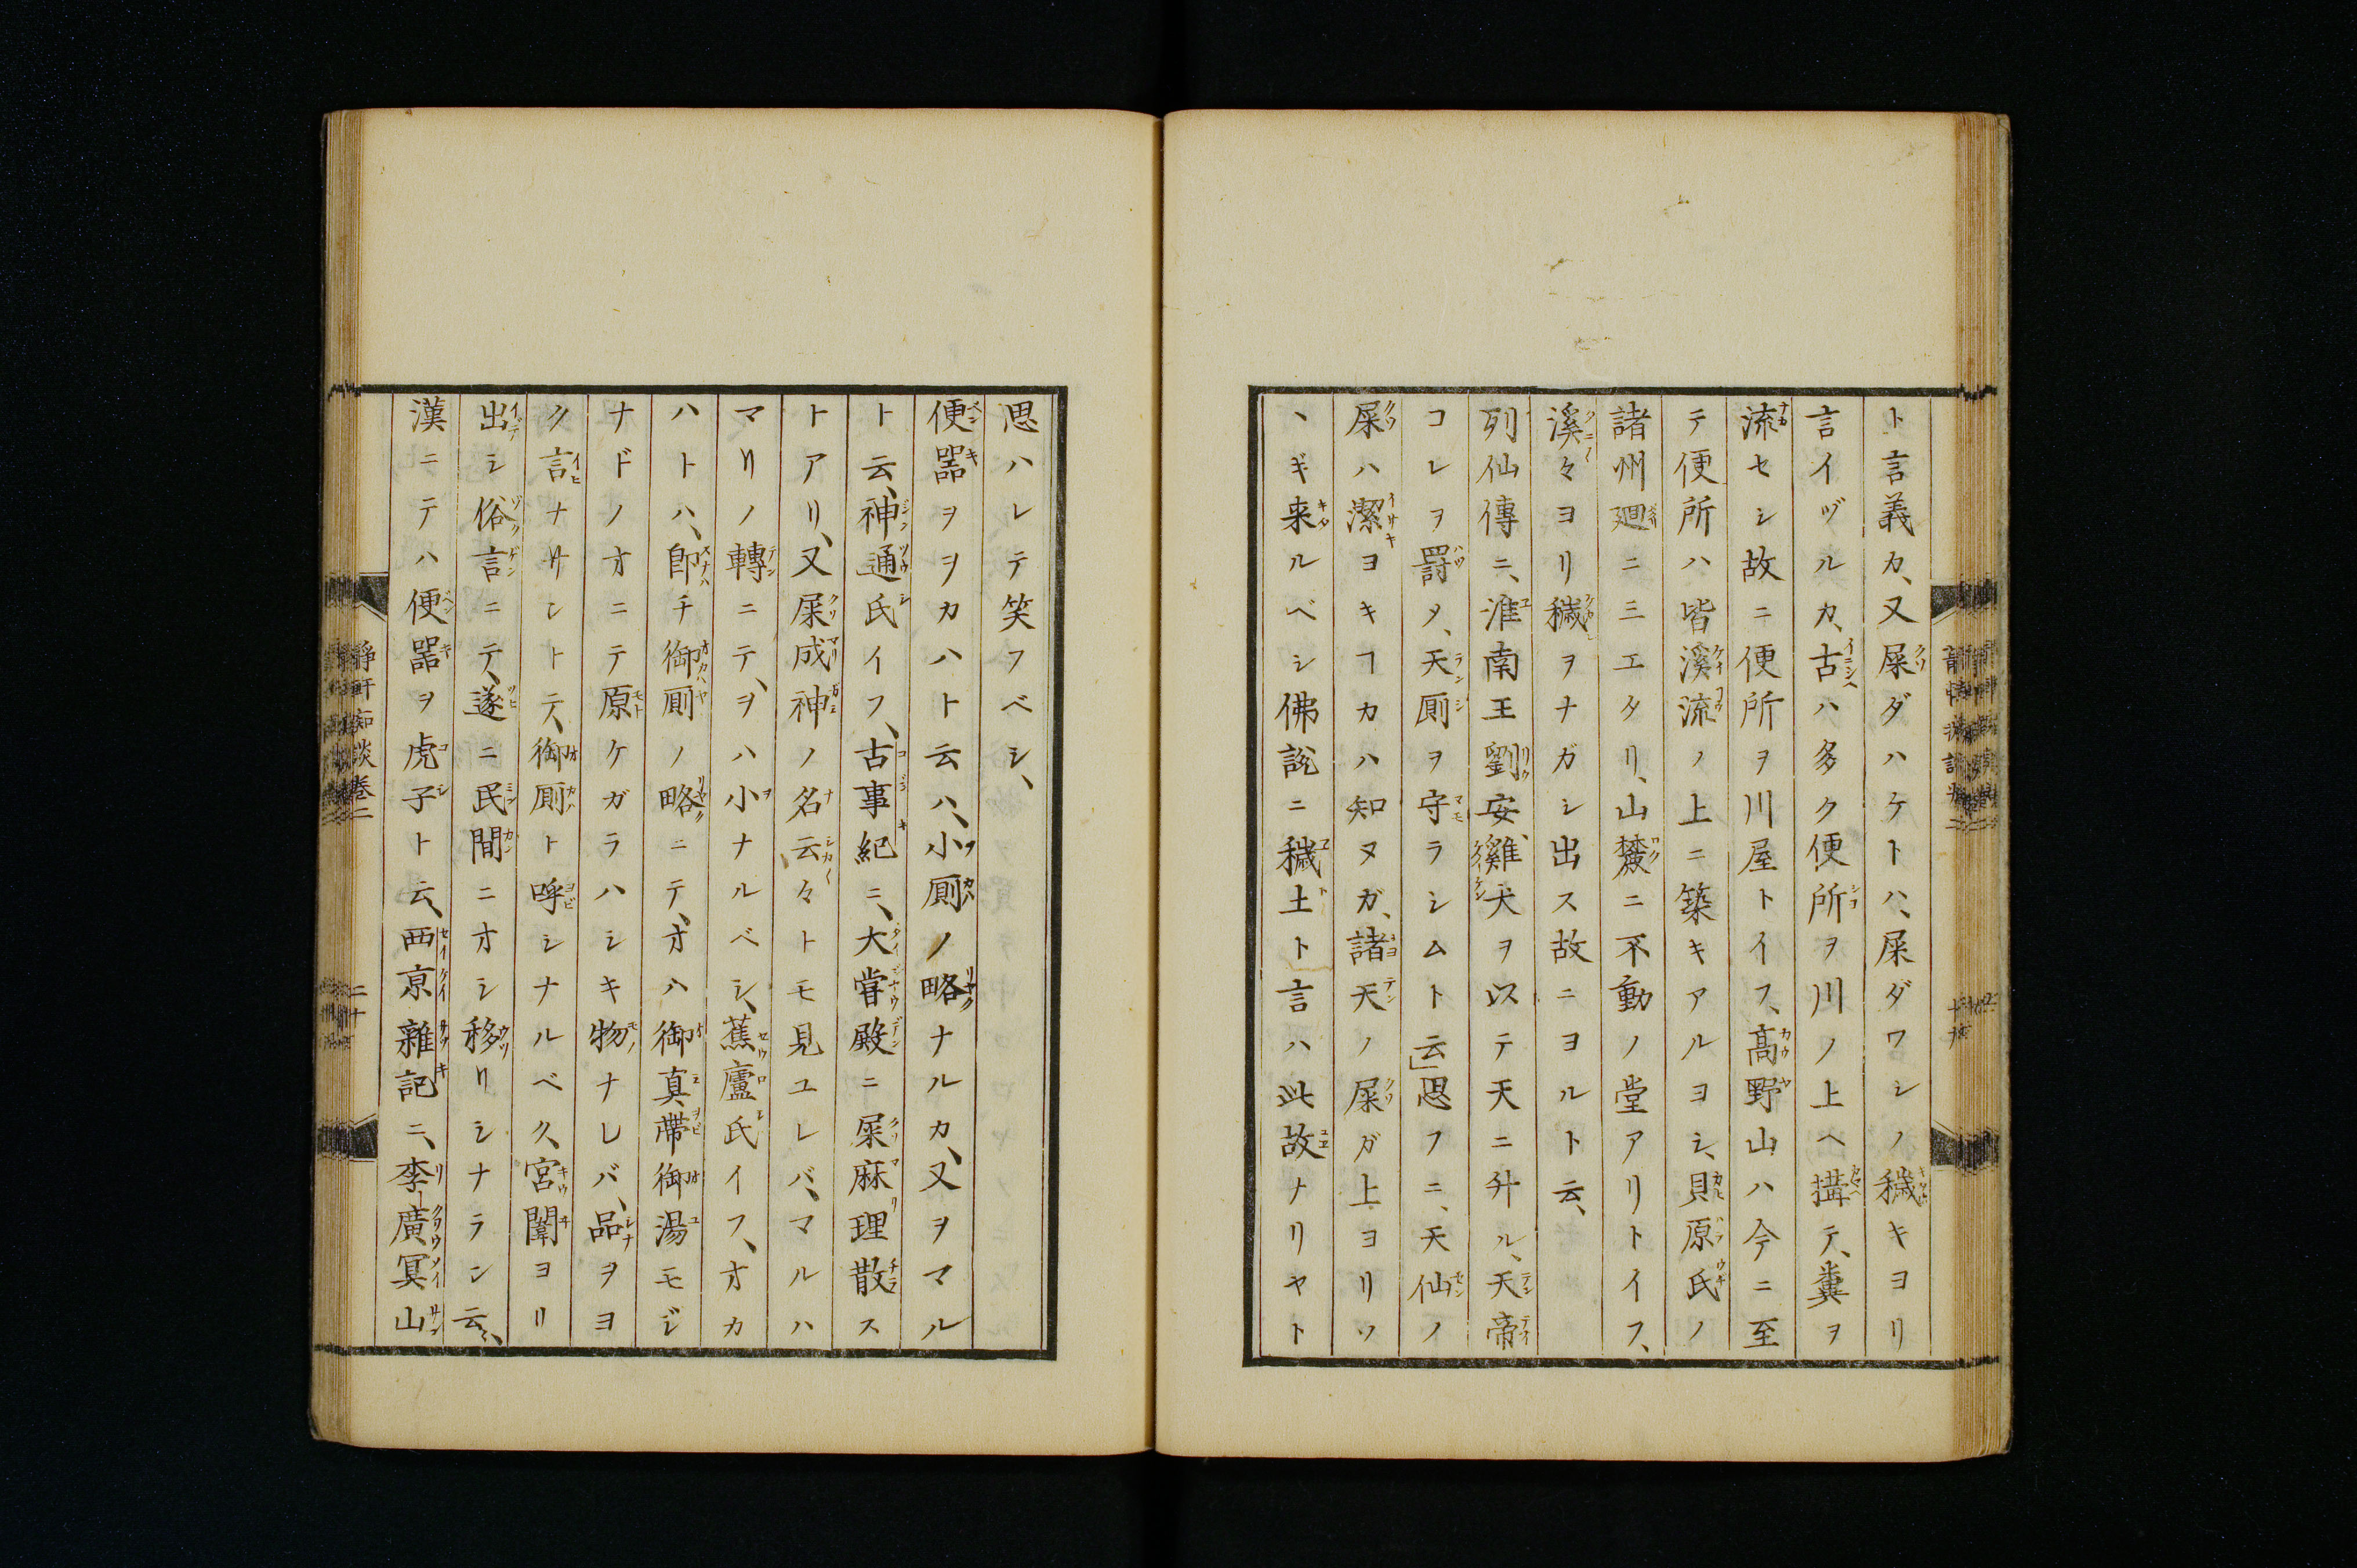 ト言義カ、又屎ダハケトハ、屎ダワシノ穢キヨリ
言イヅルカ、古ハ多ク便所ヲ川ノ上ヘ搆テ、糞ヲ
流セシ故ニ便所ヲ川屋トイフ、高野山ハ今ニ至
テ便所ハ皆溪流ノ上ニ築キアルヨシ、貝原氏ノ
諸州廻ニ三エタリ、山麓ニ不動ノ堂アリトイフ、
溪々ヨリ穢ヲナガシ出ス故ニヨルト云、
列仙傳ニ、淮南王劉安、雞犬ヲ以テ天ニ升ル、天帝
コレヲ罸メ、天厠ヲ守ラシムト云」思フニ、天仙ノ
屎ハ潔ヨキヿカハ知ヌガ、諸天ノ屎ガ上ヨリソ
ヽギ来ルベシ佛説ニ穢土ト言ハ此故ナリヤト
思ハレテ笑フベシ、
便器ヲヲカハト云ハ、小厠ノ略ナルカ、又ヲマル
ト云、神通氏イフ、古事紀ニ、大甞殿ニ屎麻理散ス
トアリ、又屎成神ノ名云々トモ見ユレバ、マルハ
マリノ轉ニテ、ヲハ小ナルベシ、蕉廬氏イフ、オカ
ハトハ、卽チ御厠ノ略ニテ、オハ御真帶御湯モジ
ナドノオニテ原ケガラハシキ物ナレバ、品ヲヨ
ク言ナサントテ、御厠ト呼シナルベク、宮闈ヨリ
出シ俗言ニテ、遂ニ民間ニオシ移リシナラン云々、
漢ニテハ便器ヲ虎子ト云、西京雜記ニ、李廣冥山
靜軒痴談卷二
二十